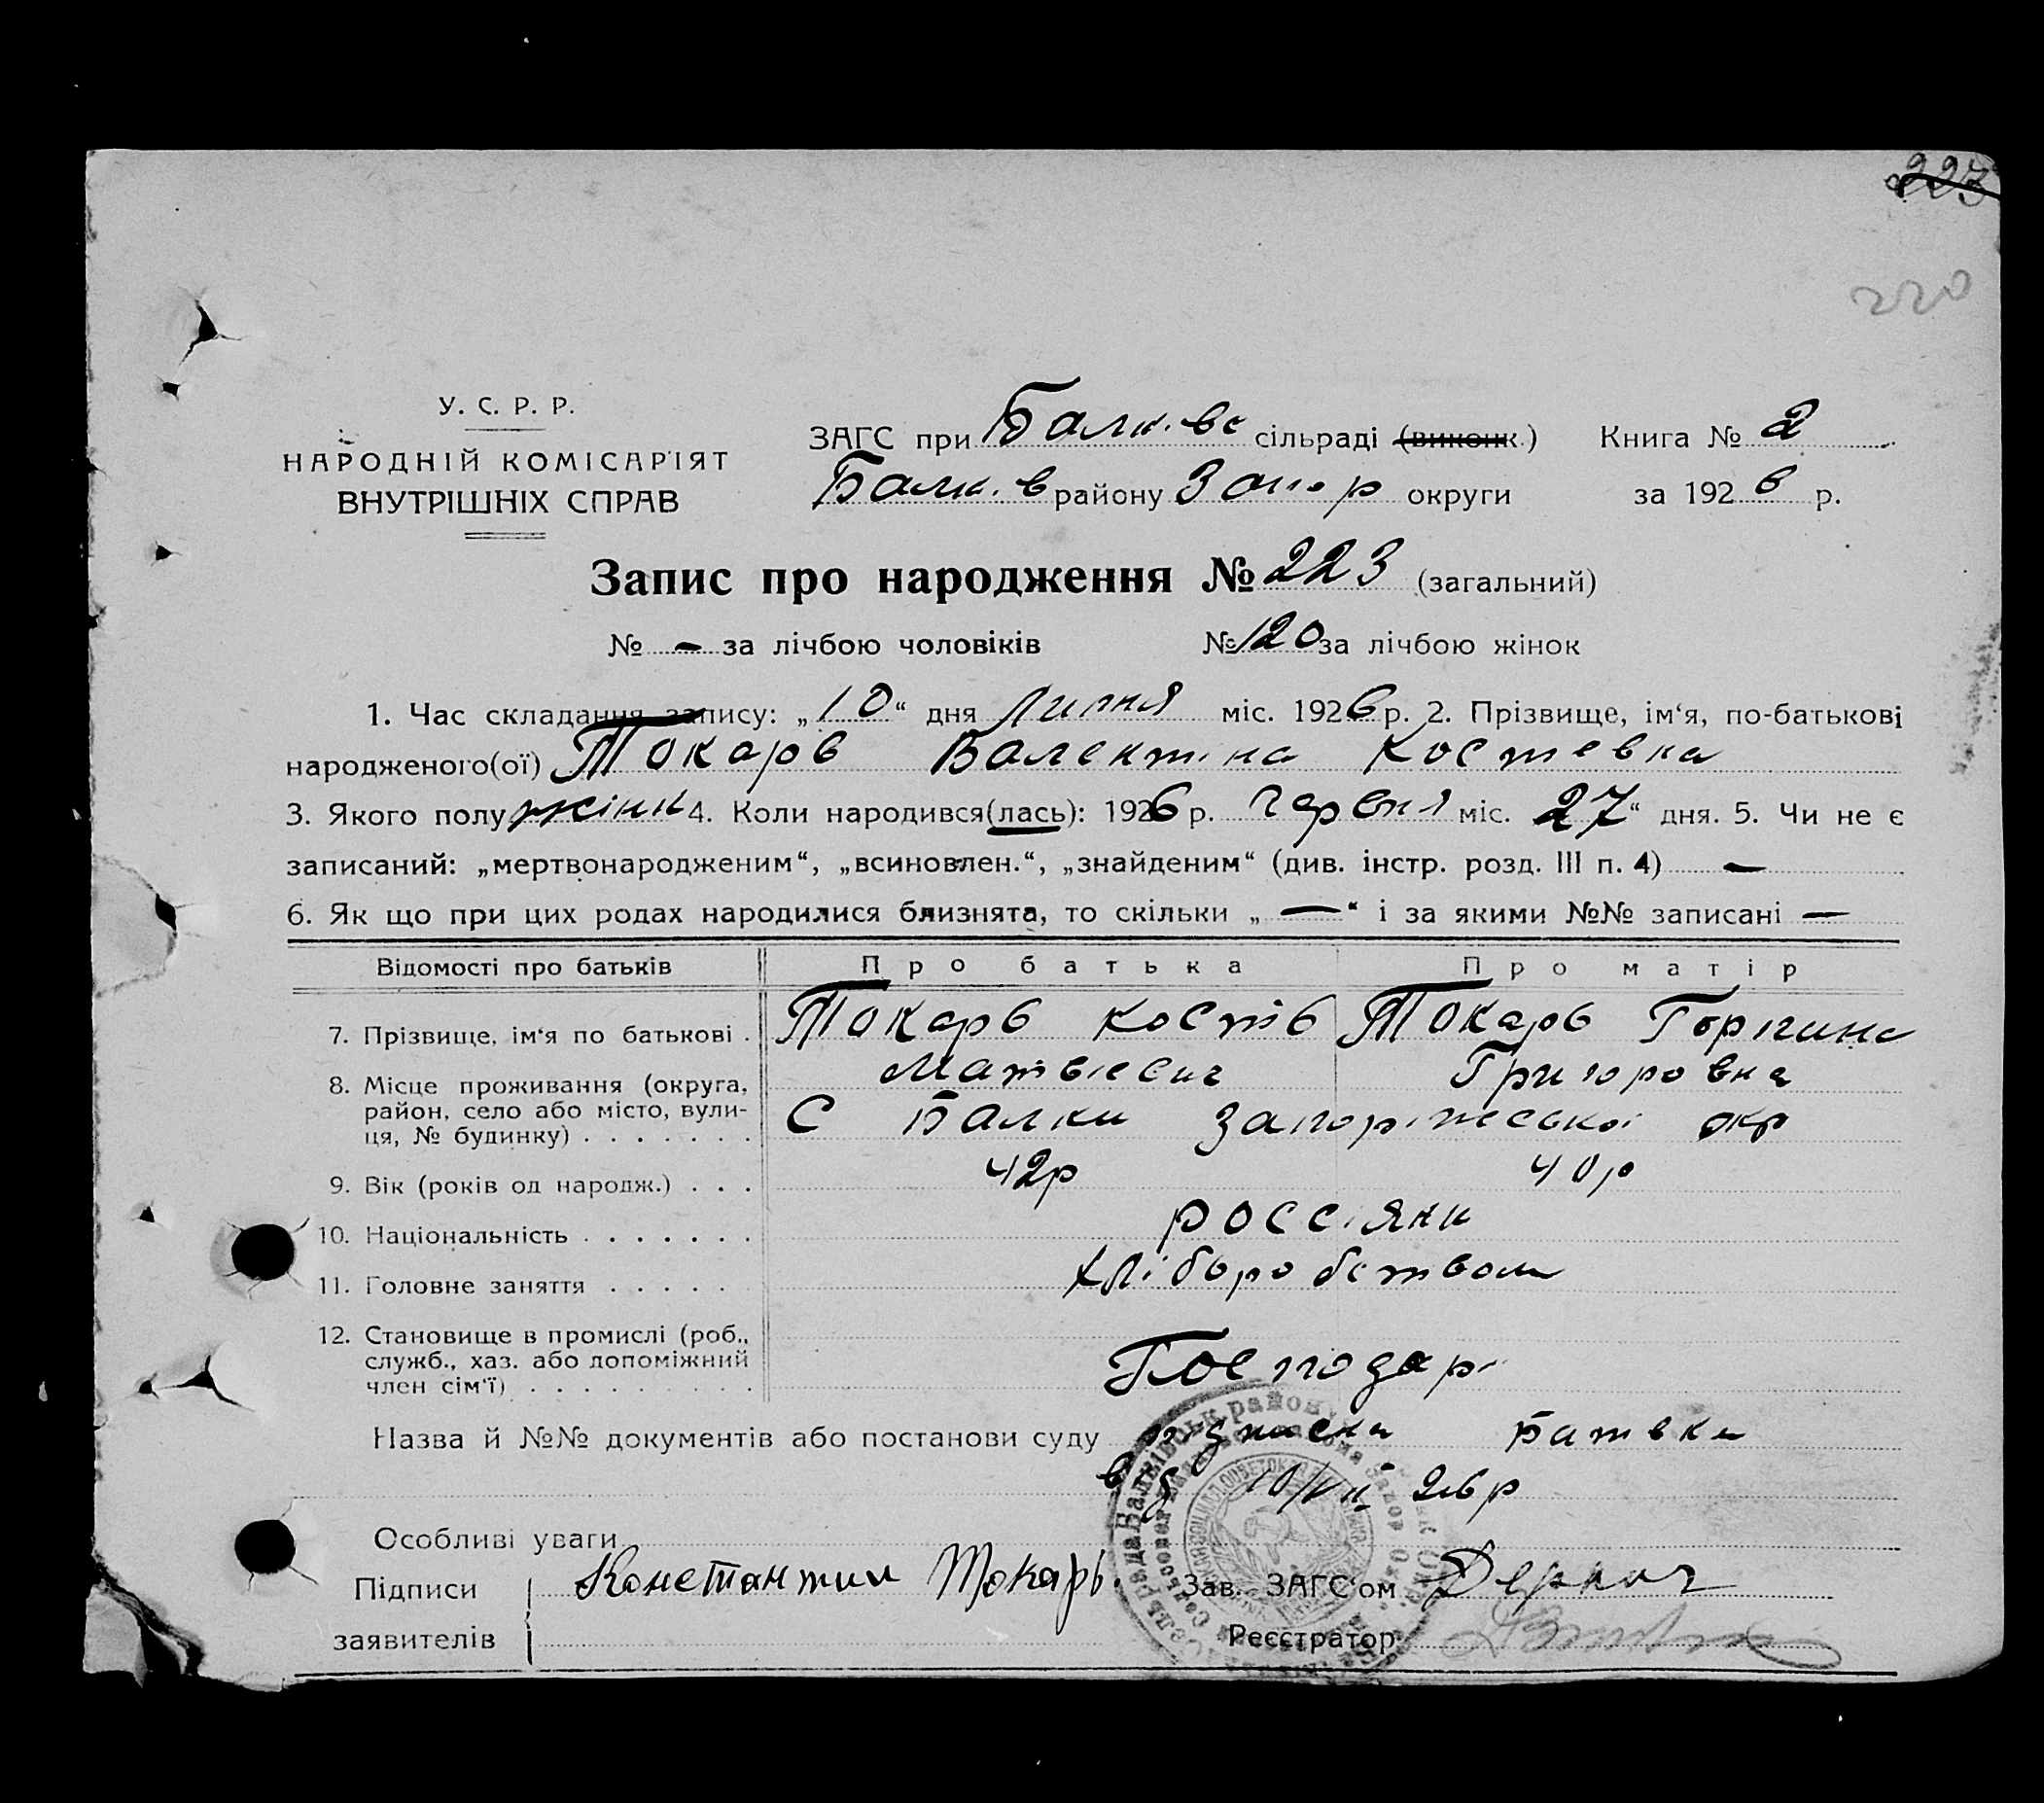 223
220
У. С. Р. Р.
НАРОДНІЙ КОМІСАР'ІЯТ
ВНУТРІШНІХ СПРАВ
ЗАГС при Балк. вс сільраді (виконк.) Книга № 2
Балк. в району Запор округи за 1926 р.
Запис про народження № 223 (загальний)
№ - за лічбою чоловіків № 120 за лічбою жінок
1. Час складання запису: „10“ дня Липня міс. 1926 р. 2. Прізвище, ім‘я, по-батькові
народженого(ої) Токарь Валентіна Костевна
3. Якого полу жінк 4. Коли народився(лась): 1926 р. Червня міс. 27“ дня. 5. Чи не є
записаний: „мертвонародженим“, „всиновлен.“, „знайденим“ (див. інстр. розд. III п. 4) —
6. Як що при цих родах народилися близнята, то скільки „ — “ і за якими №№ записані —
Відомості про батьків Про батька Про матір
7. Прізвище, ім‘я по батькові . Токарь Костів Токарь
Матвієвич Григоровна
8. Місце проживання (округа, район, село або місто, вулиця, № будинку) . . . . . . . С Балки Запоріжської окр
9. Вік (років од народж.) . . . 42р 40р
10. Національність . . . . . . . россіяни
11. Головне заняття . . . . . . хліборобством
12. Становище в промислі (роб., служб., хаз. або допоміжний член сім‘ї) . . . . . . . . . Господар
Назва й №№ документів або постанови суду Батьки
10/VII 26р
Особливі уваги
Підписи Константин Токарь. Зав. ЗАГС‘ом
заявителів Реєстратор